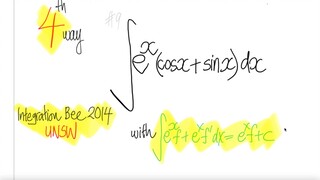 4th way
#9
∫e^x(cosx+sinx)dx
Integration Bee 2014
UNSW
with ∫e^x f+e^x f' dx = e^x f+c